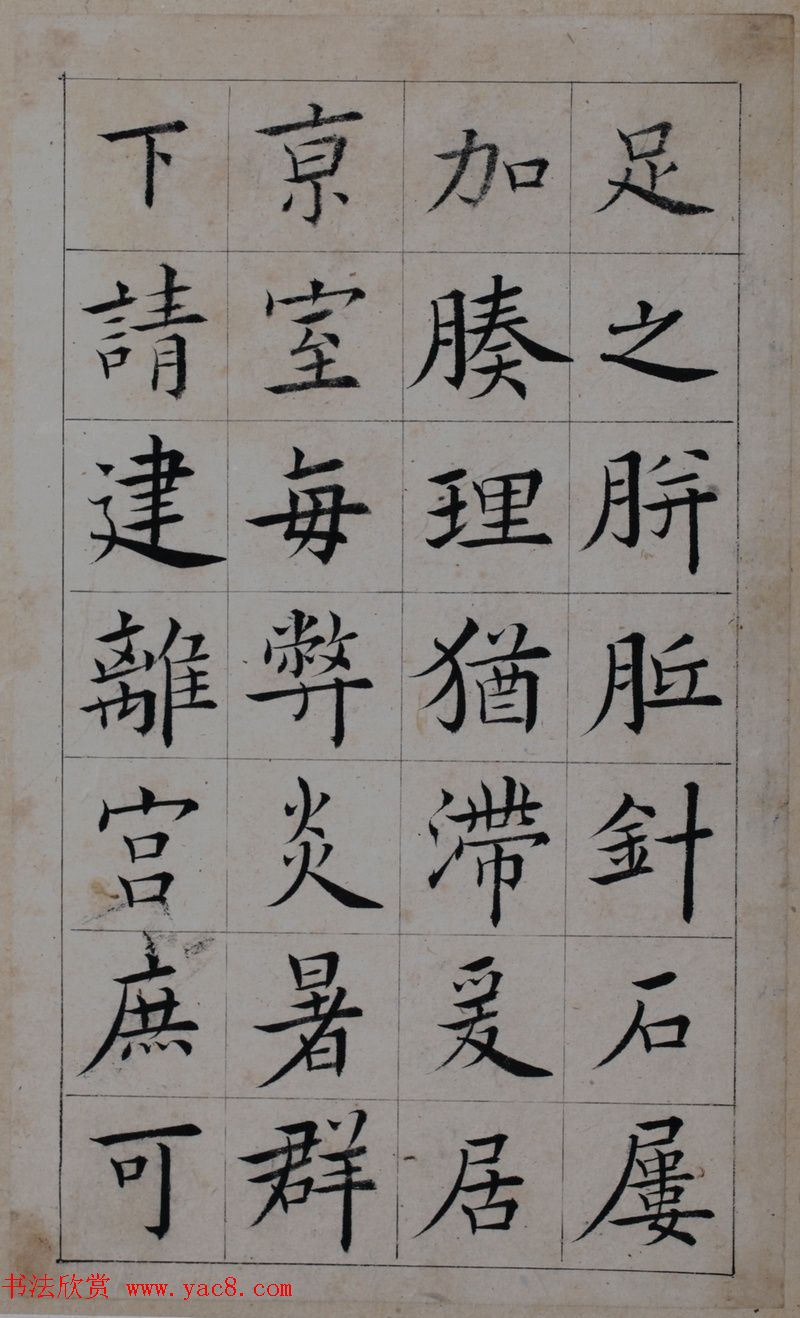 足之胼胝針石屢
加腠理猶滯爰居
京室每弊炎暑群
下請建離宮庶可
书法欣赏 www.yac8.com